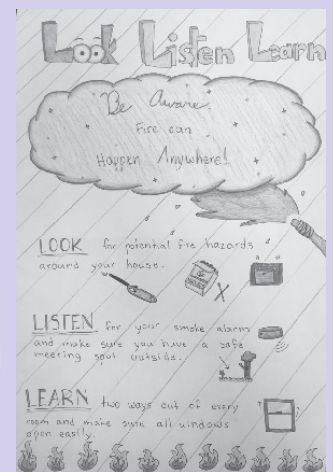 Look Listen Learn
Be Aware
Fire can
Happen Anywhere!
LOOK for potential fire hazards
around your house.
LISTEN for your smoke alarms
and make sure you have a safe
meeting spot outside.
LEARN two ways out of every
room and make sure all windows
open easily.